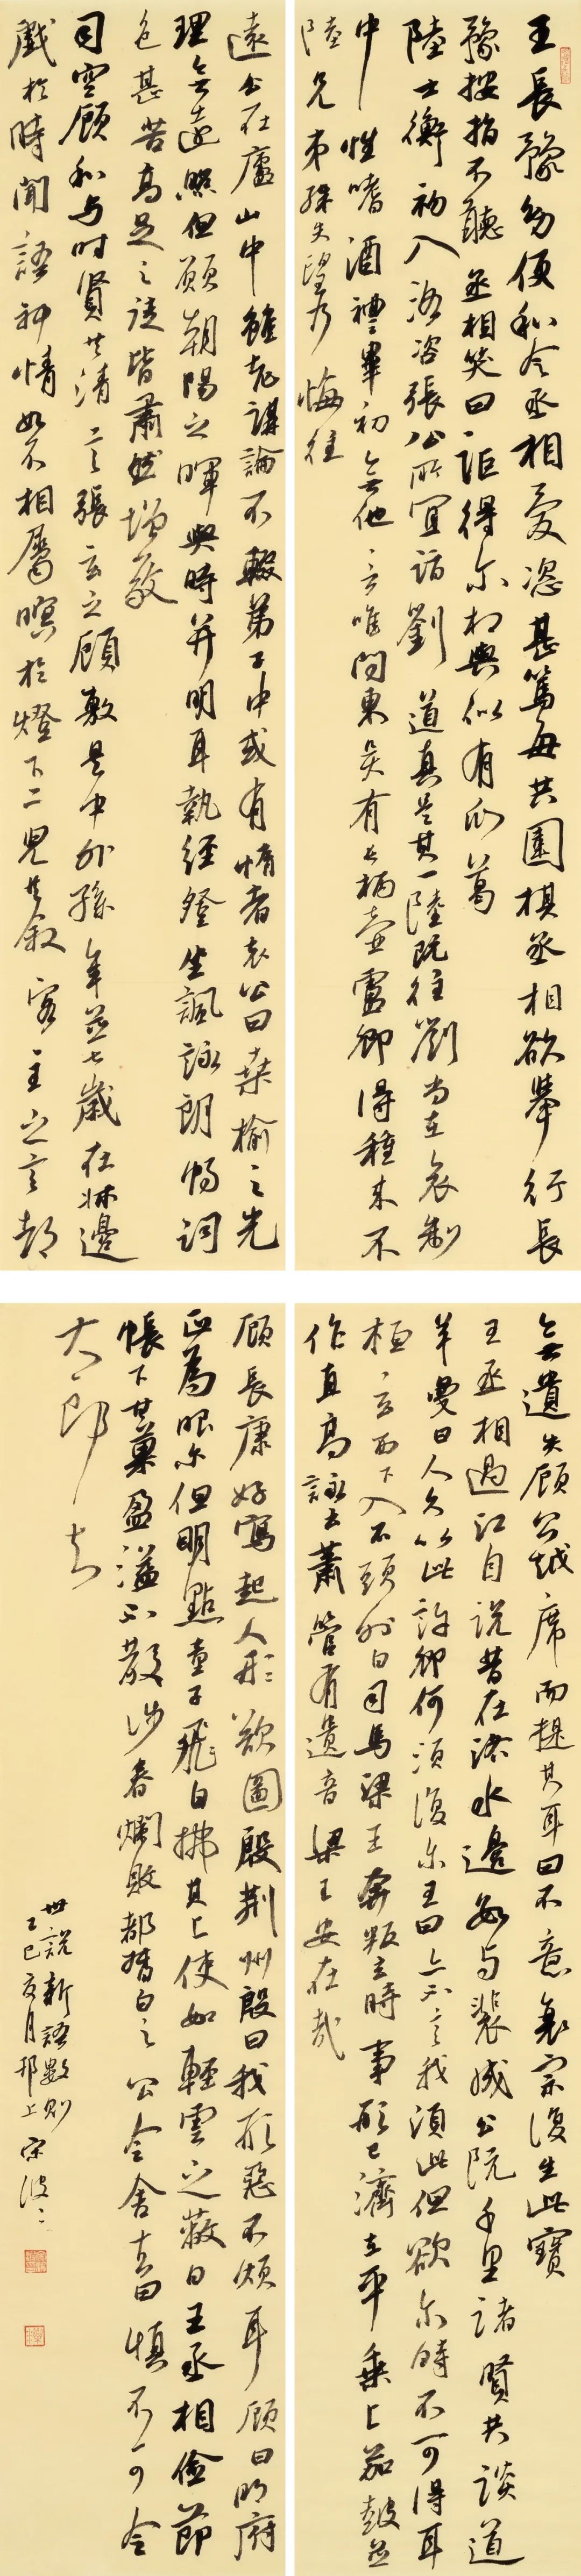 王長豫幼便和令丞相愛恣甚篤每共圍棋丞相欲舉行長
豫按指不聽丞相笑曰詎得爾相與似有瓜葛
陸士衡初入洛咨張公所宜詣劉道真是其一陸既往劉尚在哀制
中性嗜酒禮畢初無他言唯問東吳有長柄壺盧卿得種來不
陸兄弟殊失望乃悔往
遠公在廬山中雖老講論不輟弟子中或有惰者遠公曰桑榆之光
理無遠照但願朝陽之暉與時并明耳執經登坐諷誦朗暢詞
色甚苦高足之徒皆肅然增敬
司空顧和与時賢共清言張玄之顧敷是中外孫年並七歲在牀邊
戲於時聞語神情如不相屬暝於燈下二兒共叙客主之言都
無遺失顧公越席而提其耳曰不意衰宗復生此寶
王丞相過江自說昔在洛水邊數与裴成公阮千里諸賢共談道
羊曼曰人久以此許卿何須復爾王曰亦不言我須此但欲爾時不可得耳
桓玄西下入石頭外白司馬梁王奔叛玄時事形已濟在平乘上笳鼓並
作直高詠云蕭管有遺音梁王安在哉
顧長康好寫起人形欲圖殷荊州殷曰我形惡不煩耳顧曰明府
正為眼爾但明點童子飛白拂其上使如輕雲之蔽日王丞相儉節
帳下甘菓盈溢不散涉春爛敗都督白之公令舍去曰慎不可令
大郎知
世說新語數則
乙巳亥月邗上宋波